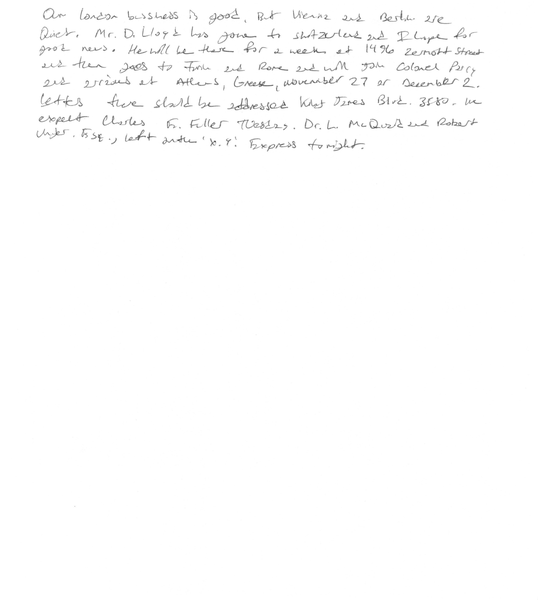 Our London bussness is good, But Vienna and Berlin are
Quiet. Mr. D. Lloyd has gone to Switzerland and I hope for
good news. He will be there for a week at 1496 Zermott Street
and then goes to Turin and Rome and will join Colonel Parry
and arrives at Athens, Greese, November 27 or December 2.
Letters there should be addressed King James Blvd. 3580. we
expect Charles E. Fuller Tuesday. Dr. L. McQuaid and Robert
Unger. Esq., left on the 'X.Y.' Express tonight.